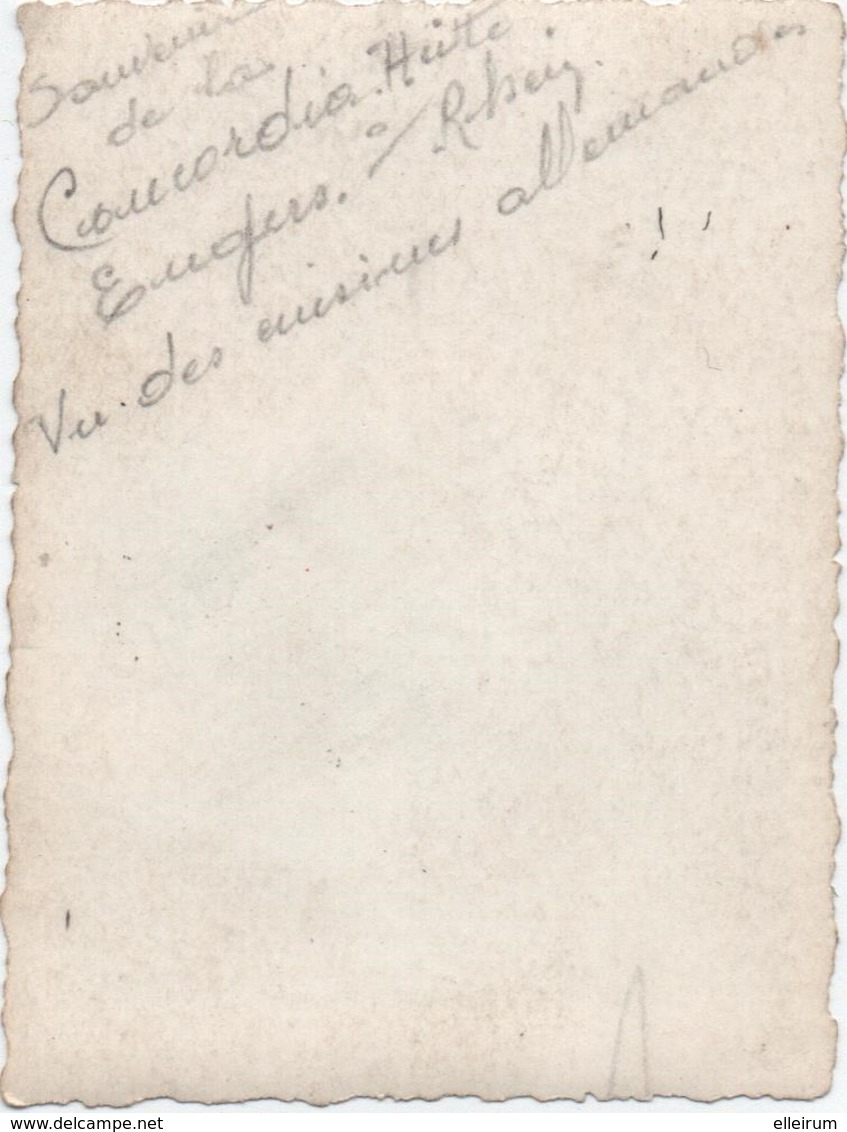 Souvenir
de la
Concordia. Hütte.
Engers. a/Rhein.
Vu. des cuisines allemandes
!
delcampe.net
elleirum